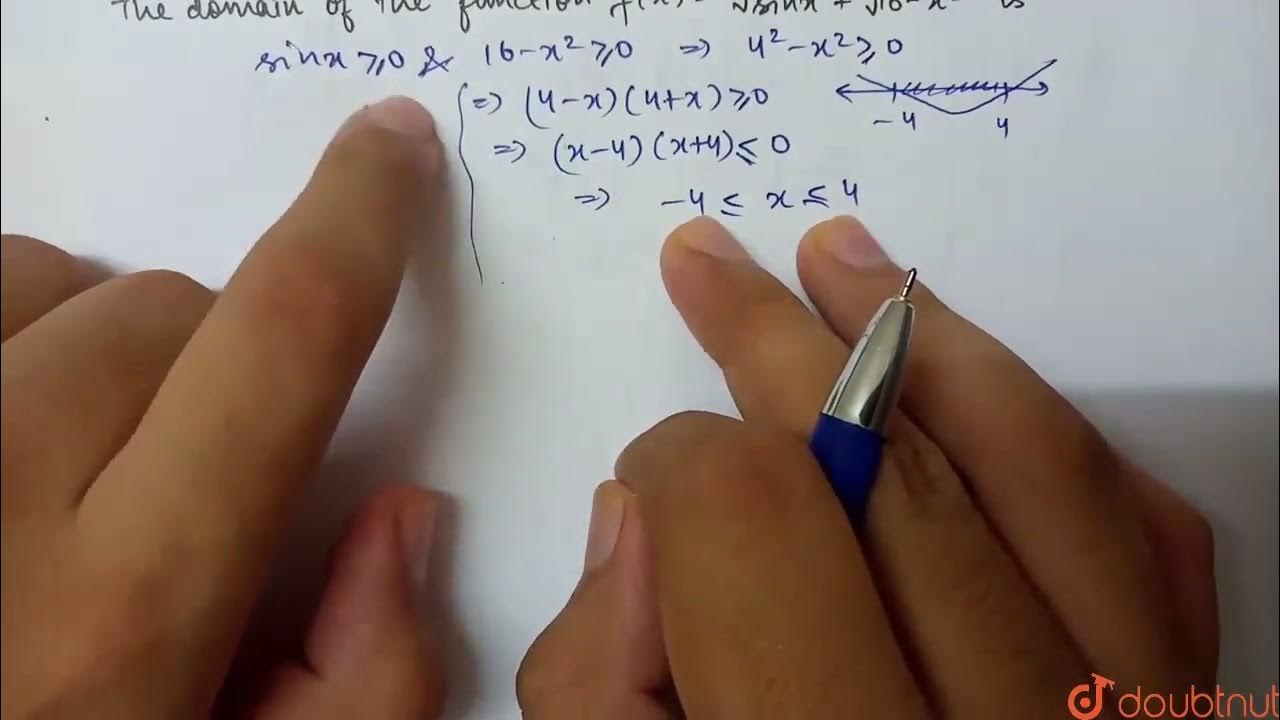 The domain of the function f(x) = √sinx + √16-x² is
sinx ≥ 0 & 16-x² ≥ 0 ⇒ 4²-x² ≥ 0
⇒ (4-x)(4+x) ≥ 0
-4 4
⇒ (x-4)(x+4) ≤ 0
⇒ -4 ≤ x ≤ 4
doubtnut